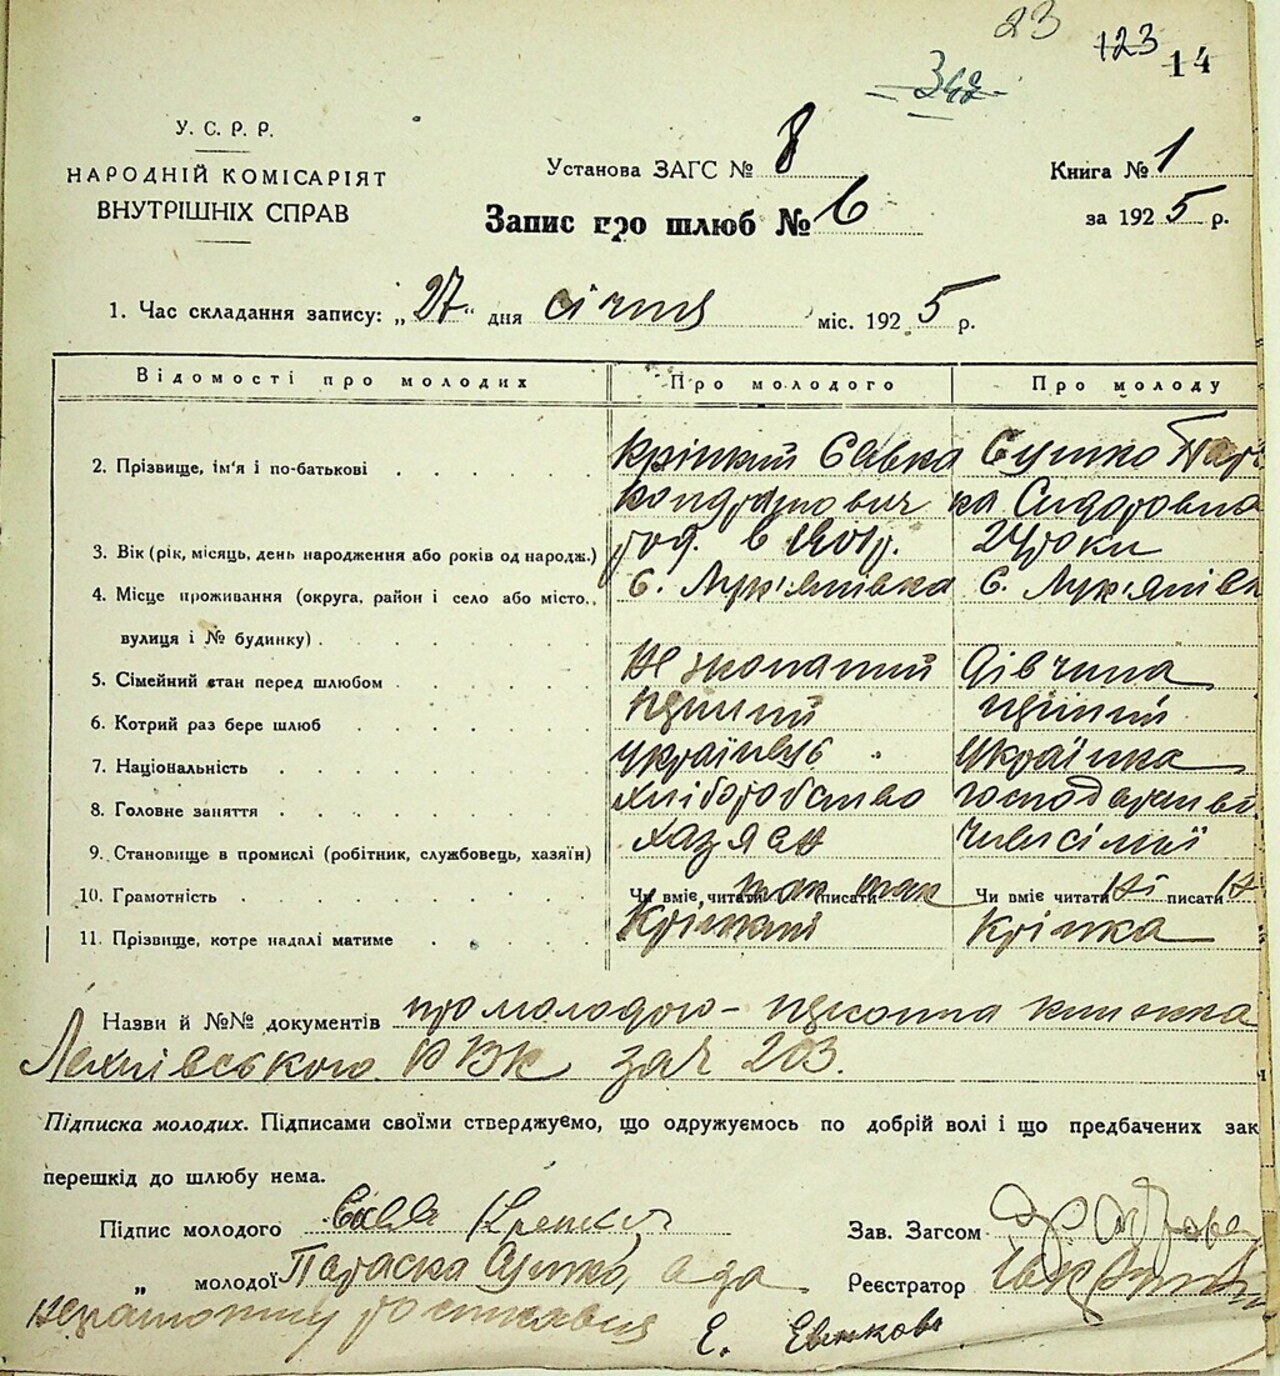 23
123 14
342
У. С. Р. Р.
НАРОДНІЙ КОМІСАРІЯТ
ВНУТРІШНІХ СПРАВ
Установа ЗАГС № 8
Книга № 1
Запис про шлюб № 6
за 1925 р.
1. Час складання запису: „27" дня січня міс. 1925 р.
Відомості про молодих Про молодого Про молоду
2. Прізвище, ім'я і по-батькові Кріпкий Савка Сушко Парас
Кондратович ка Сидоровна
3. Вік (рік, місяць, день народження або років од народж.) род. в 1901р. 24 роки
4. Місце проживання (округа, район і село або місто, с. Лук'янівка с. Лук'янівк
вулиця і № будинку)
5. Сімейний стан перед шлюбом Не жонатий дівчина
6. Котрий раз бере шлюб перший перший
7. Національність українець українка
8. Головне заняття хліборобство господарство
9. Становище в промислі (робітник, службовець, хазяїн) хазяєн член сімї
10. Грамотність Чи вміє читати так писати так Чи вміє читати ні писати н
11. Прізвище, котре надалі матиме Кріпкий Кріпка
Назви й №№ документів про молодого –
РВК за № 203.
Підписка молодих. Підписами своїми стверджуємо, що одружуємось по добрій волі і що предбачених зак
перешкід до шлюбу нема.
Підпис молодого Сава
Зав. Загсом
„ молодої Параска Сушко, а за
Реєстратор
неграмотну росписався